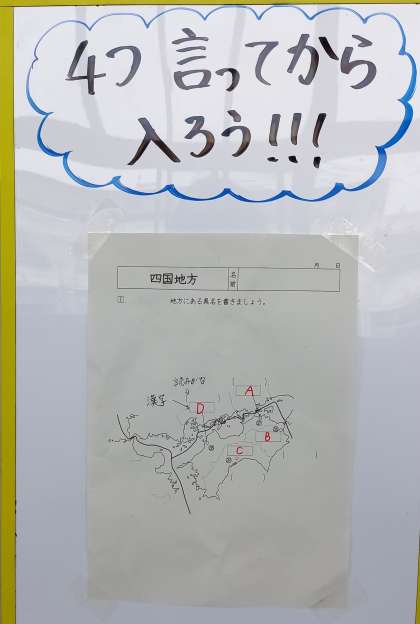 4つ 言ってから
入ろう!!!
月 日
四国地方
名前
① 地方にある県名を書きましょう。
読みがな
漢字
A
D
B
C